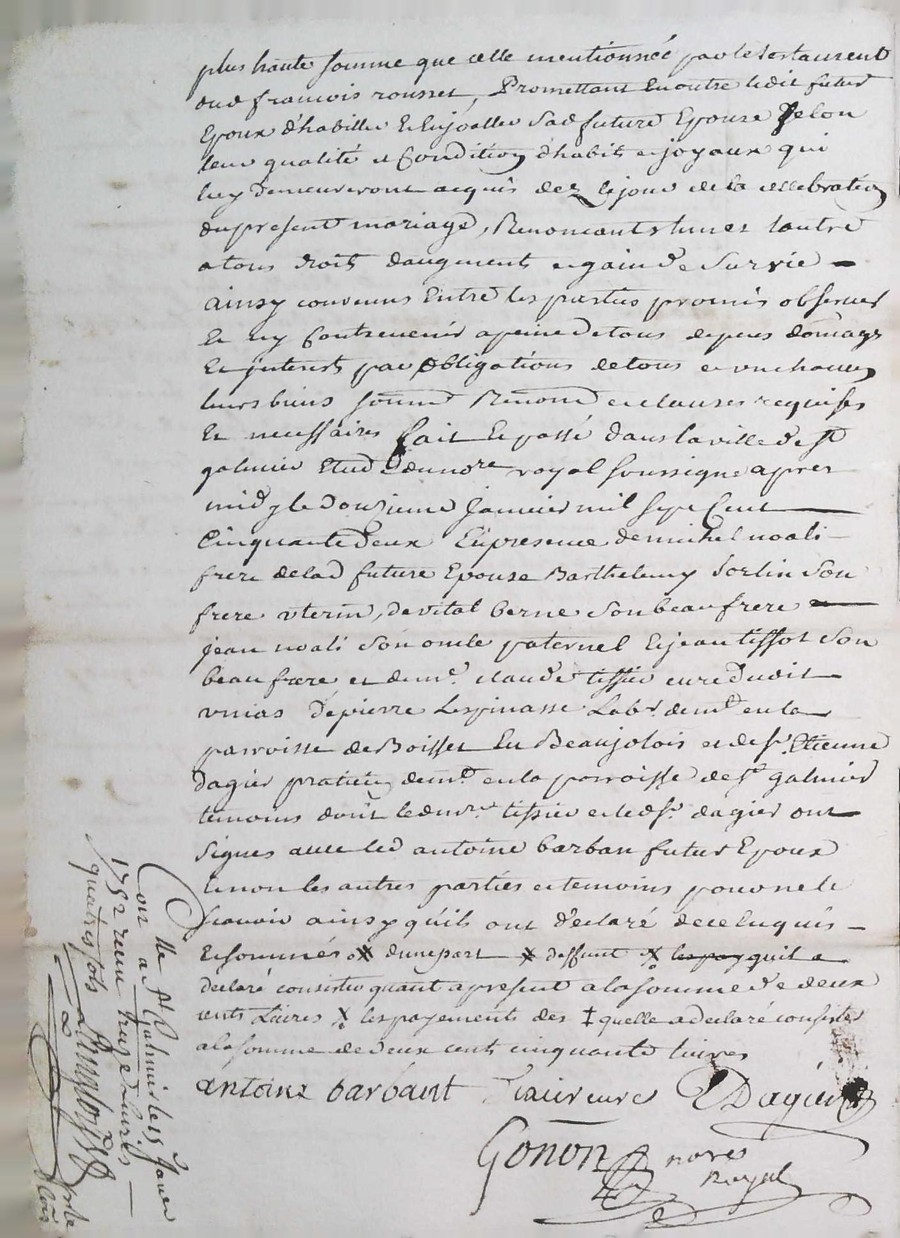 plus haute somme que celle mentionnée par le testament
dud francois rousset, Promettant En outre ledit futur
Epoux d'habiller et Enjoaller Sad future Epouse Selon
leur qualité et Condition d'habits et joyaux qui
luy demeureront acquis dez le jour de la celebration
du present mariage, Renoncants l'un et lautre
a tous droits daugment et gain de Survie
ainsy convenus Entre les parties promis observer
Et n'y Contrevenir a peine de tous depens domages
Et interest par obligations de tous et un chacun
leurs biens Renond et clauses requises
Et necessaires fait Et passé dans la ville de St
galmier Etude du nore royal soussigné apres
midy le douzieme Janvier mil Sept Cent
Cinquante deux En presence de michel noali
frere de lad future Epouse Barthelemy Sorlin Son
frere uterin, de vital berne Son beau frere
jean noali Son oncle paternel Et jean tissot Son
beau frere et de mre claude tissier curé dudit
unias de pierre Lespinasse Labr. demt en la
parroisse de Boisset En Beaujolois et de sr. Etienne
dagier praticien demt en la parroisse de St galmier
temoins dont led mre tissier et led sr. dagier ont
Signes avec led antoine barban futur Epoux
et non les autres parties et temoins pour ne le
Scavoir ainsy qu'ils ont déclaré de ce Enquis
Et sommés dune part defunt les pay quil a
declaré consister quant a present a la somme de deux
cents Livres les payements des quelle a declaré consister
a la somme de deux cent cinquante livres
antoine barbant curé Dagier
Gonon nore
Royal
Con lle St
a St Galmier le 15 Janvier
1752 receu treize livres
quatre sols